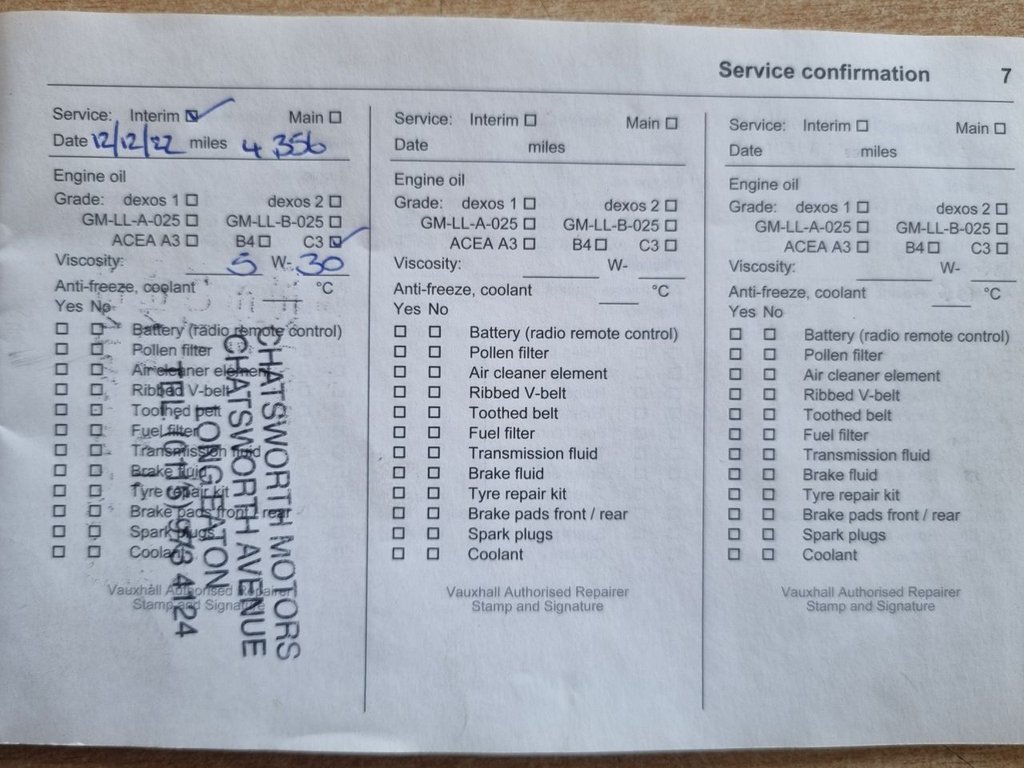 Service confirmation 7
Service: Interim Main
Date 12/12/22 miles 4356
Engine oil
Grade: dexos 1 dexos 2
GM-LL-A-025 GM-LL-B-025
ACEA A3 B4 C3
Viscosity: 5 W- 30
Anti-freeze, coolant °C
Yes No
Battery (radio remote control)
Pollen filter
Air cleaner element
Ribbed V-belt
Toothed belt
Fuel filter
Transmission fluid
Brake fluid
Tyre repair kit
Brake pads front / rear
Spark plugs
Coolant
Vauxhall Authorised Repairer
Stamp and Signature
CHATSWORTH MOTORS
CHATSWORTH AVENUE
LONG EATON
Service: Interim Main
Date miles
Engine oil
Grade: dexos 1 dexos 2
GM-LL-A-025 GM-LL-B-025
ACEA A3 B4 C3
Viscosity: W-
Anti-freeze, coolant °C
Yes No
Battery (radio remote control)
Pollen filter
Air cleaner element
Ribbed V-belt
Toothed belt
Fuel filter
Transmission fluid
Brake fluid
Tyre repair kit
Brake pads front / rear
Spark plugs
Coolant
Vauxhall Authorised Repairer
Stamp and Signature
Service: Interim Main
Date miles
Engine oil
Grade: dexos 1 dexos 2
GM-LL-A-025 GM-LL-B-025
ACEA A3 B4 C3
Viscosity: W-
Anti-freeze, coolant °C
Yes No
Battery (radio remote control)
Pollen filter
Air cleaner element
Ribbed V-belt
Toothed belt
Fuel filter
Transmission fluid
Brake fluid
Tyre repair kit
Brake pads front / rear
Spark plugs
Coolant
Vauxhall Authorised Repairer
Stamp and Signature